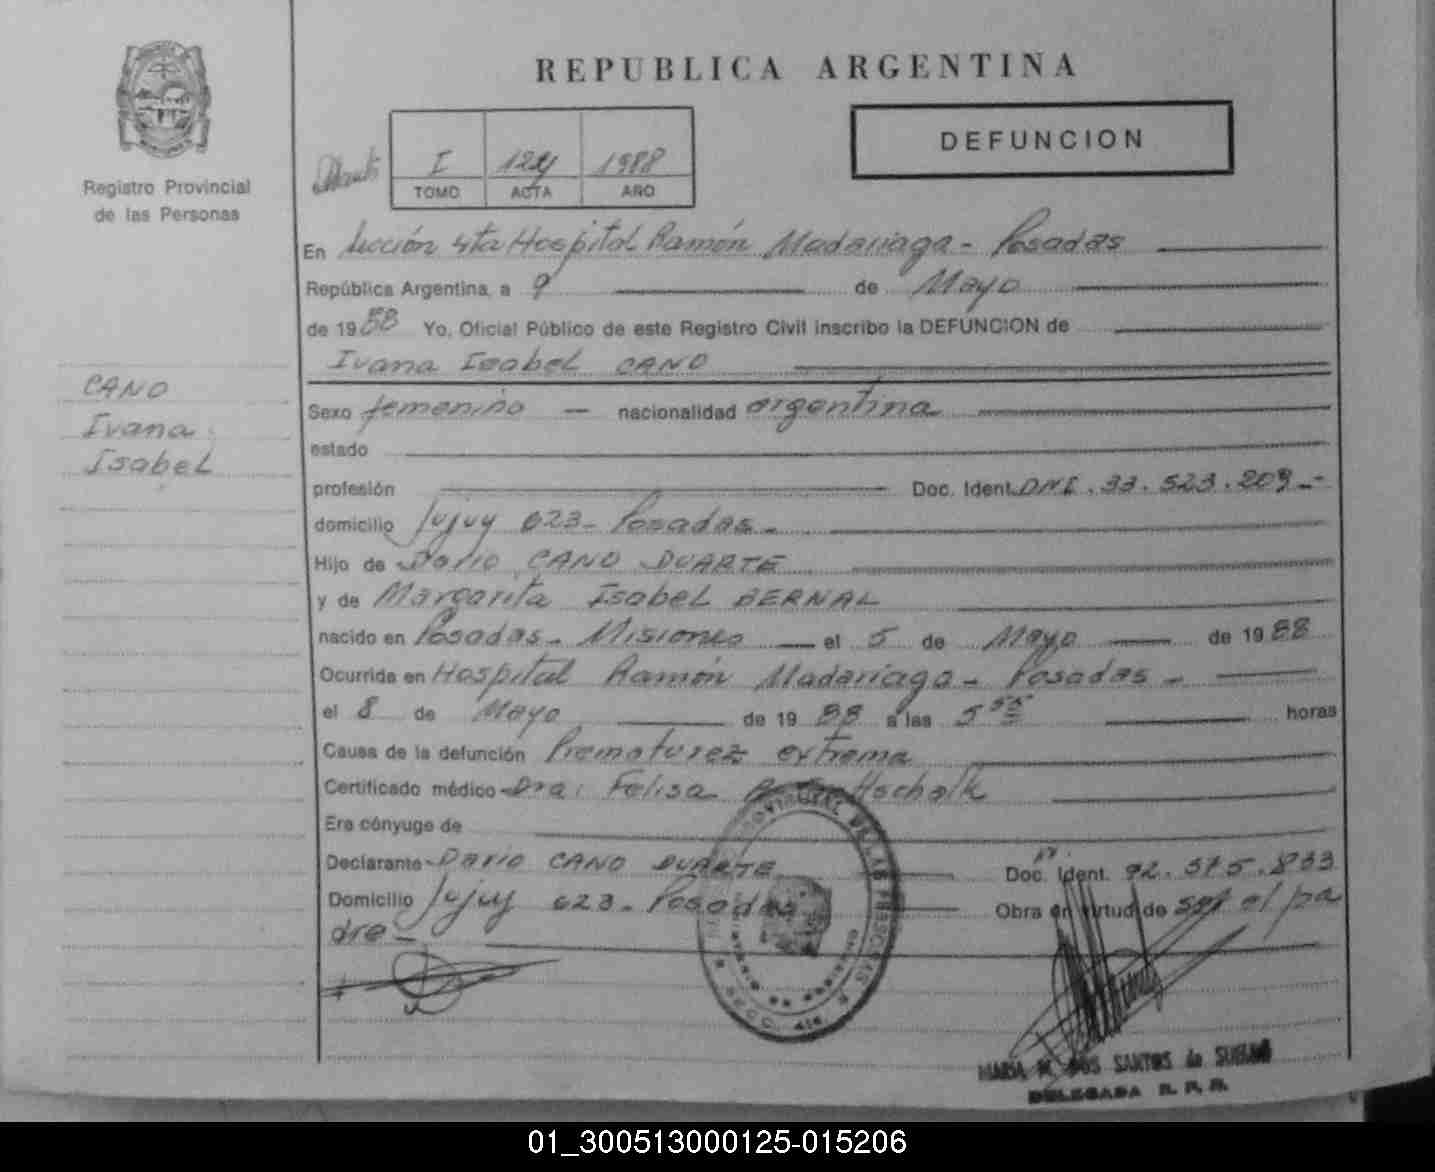 REPUBLICA ARGENTINA
DEFUNCION
Registro Provincial
de las Personas
I 1988
TOMO ACTA AÑO
En Sección 4ta Hospital Ramón Madariaga - Posadas
República Argentina, a 9 de Mayo
de 1988 Yo, Oficial Público de este Registro Civil inscribo la DEFUNCION de
Ivana Isabel CANO
CANO
Ivana
Isabel
Sexo femenino - nacionalidad argentina
estado
profesión Doc. Ident. DNI. 33.523.209.-
domicilio Jujuy 623- Posadas-
Hijo de Dario CANO DUARTE
y de Margarita Isabel BERNAL
nacido en Posadas - Misiones el 5 de Mayo de 1988
Ocurrida en Hospital Ramón Madariaga - Posadas -
el 8 de Mayo de 1988 a las 5 55 horas
Causa de la defunción Prematurez extrema
Certificado médico Dra. Felisa
Era cónyuge de
Declarante Dario CANO DUARTE Doc. Ident. 92.575.833
Domicilio Jujuy 623- Posadas Obra en virtud de ser el pa
dre -
MARIA M. DOS SANTOS de
DELEGADA R. P. P.
01_300513000125-015206